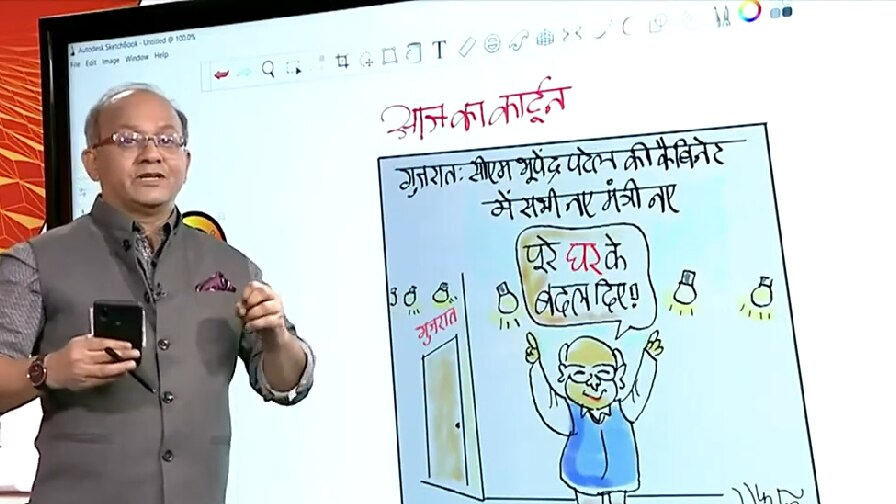 Autodesk SketchBook - Untitled @ 100.0%
File Edit Image Window Help
T
आज का कार्टून
गुजरात: सीएम भूपेंद्र पटेल की कैबिनेट
में सभी नए मंत्री नए
पूरे घर के
बदल दिए!
गुजरात